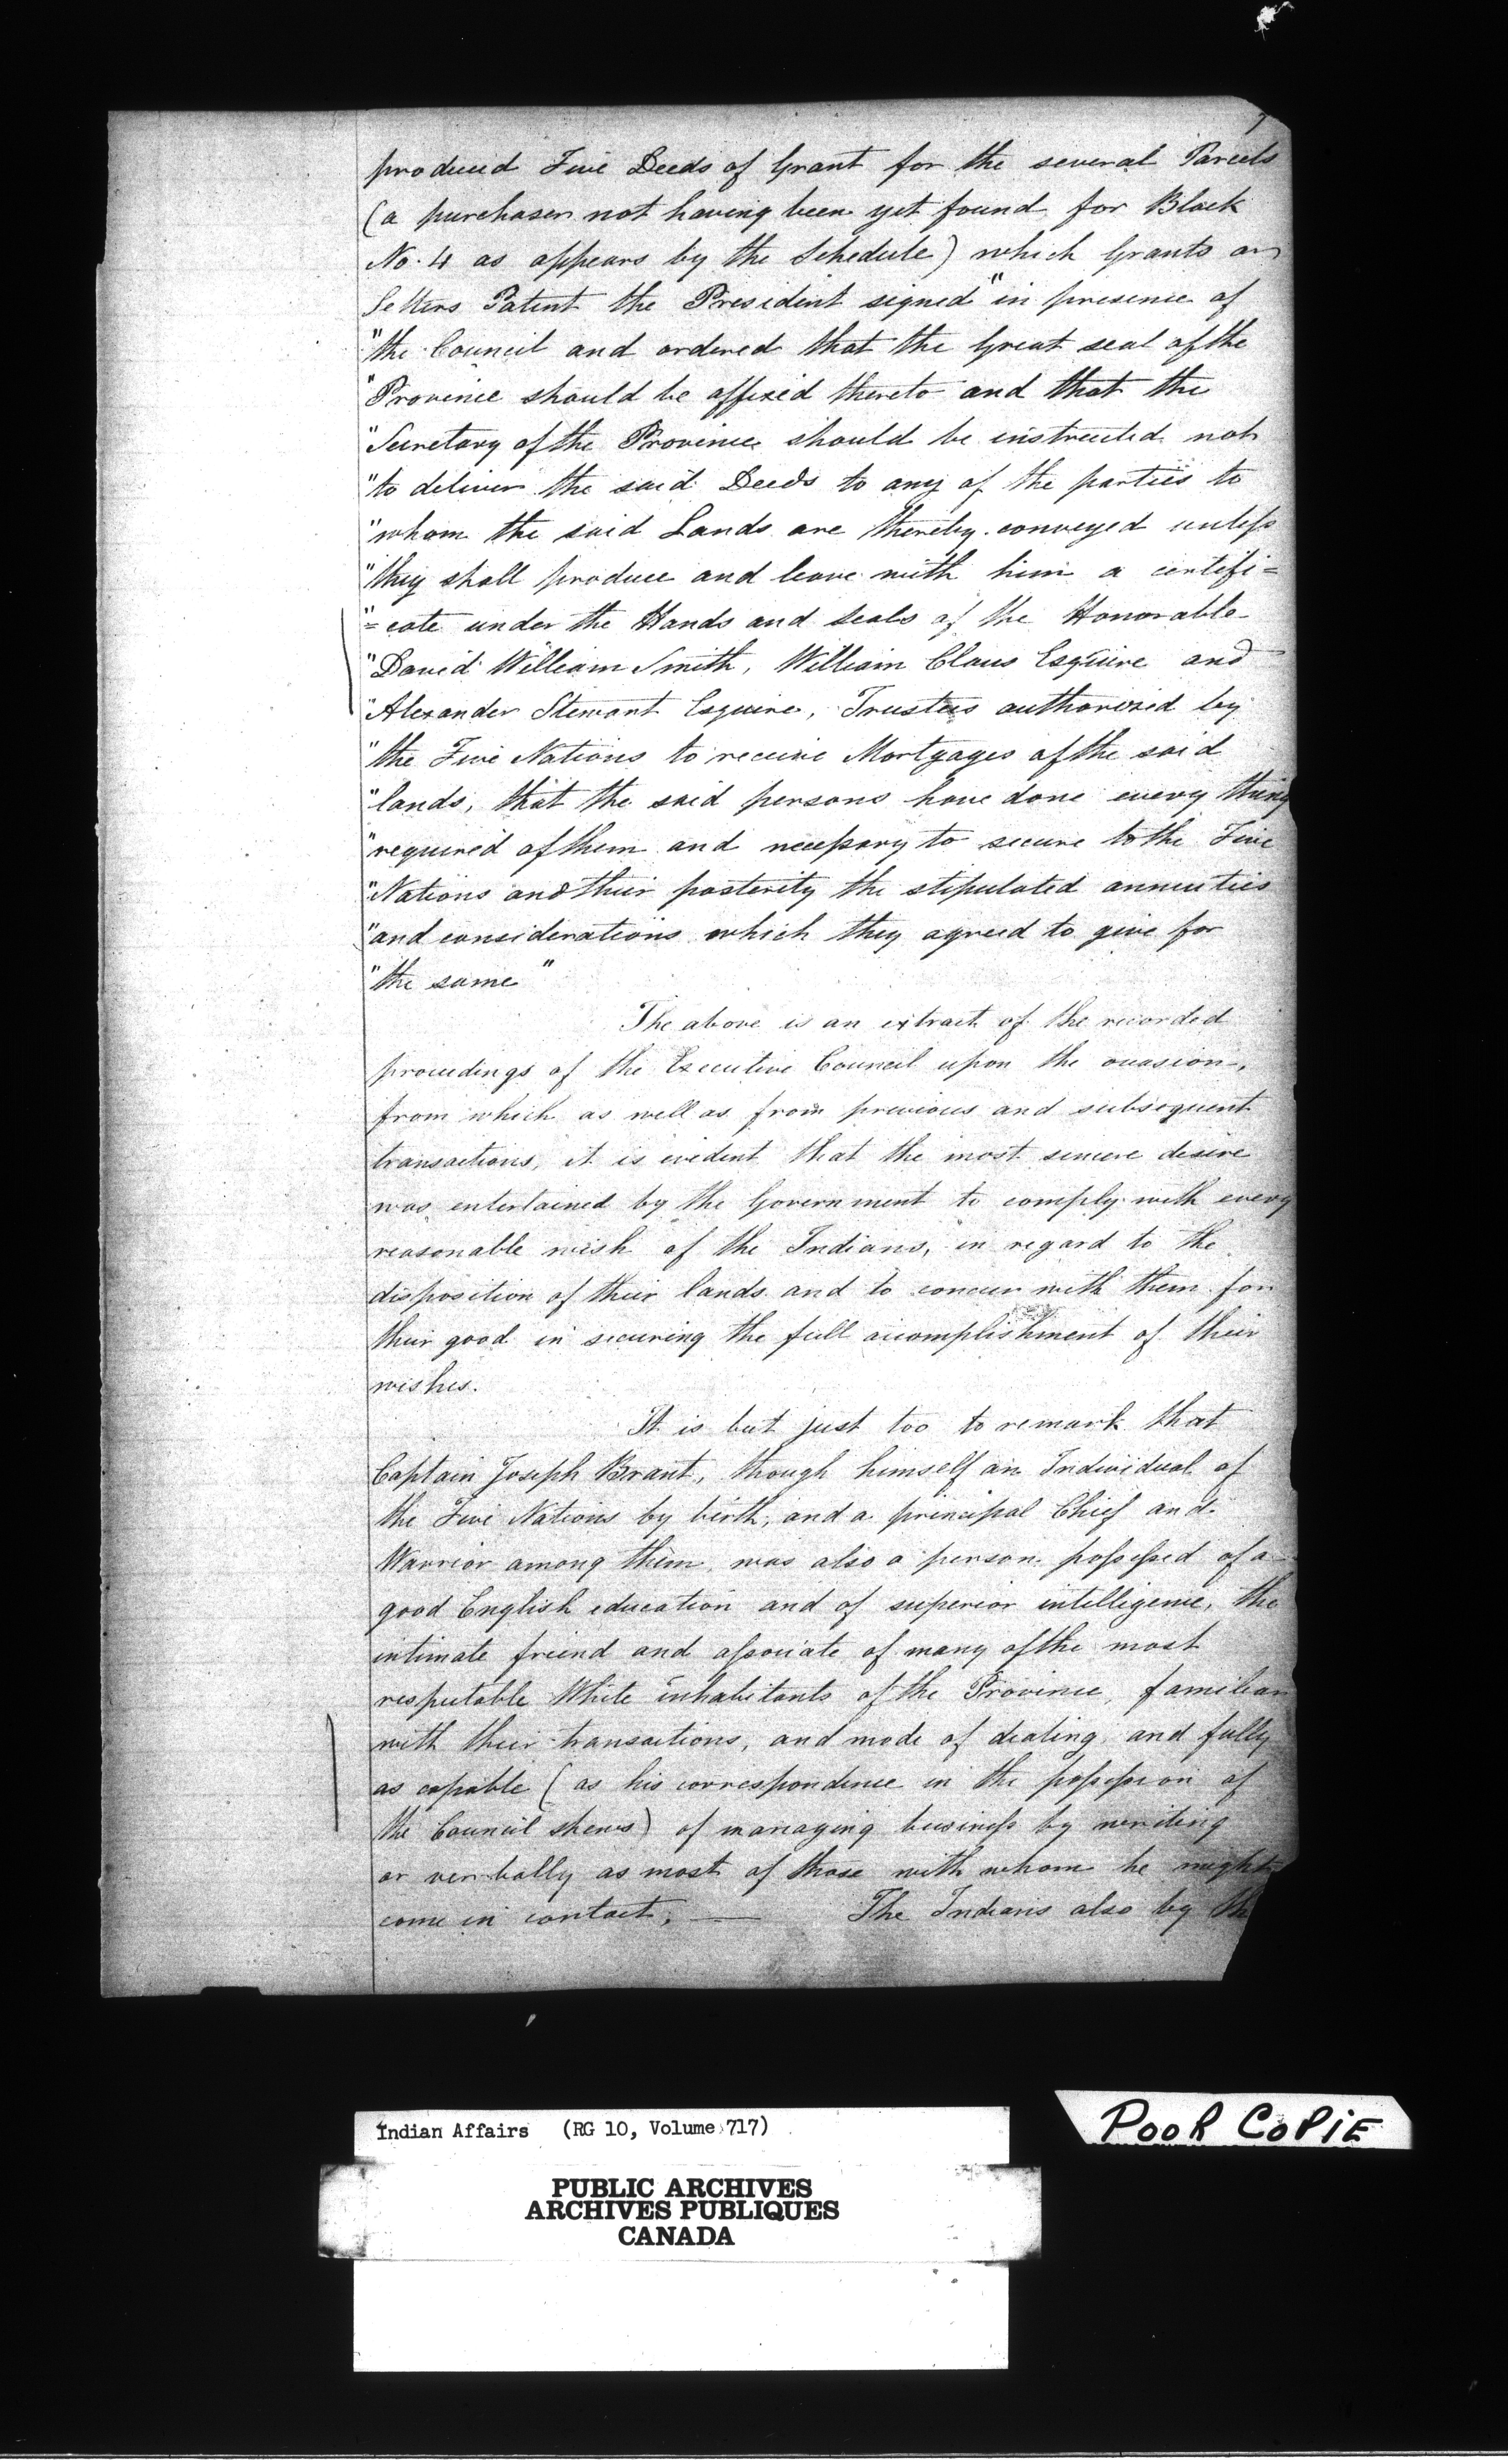 7
produced Five Deeds of Grant for the several Parcels
(a purchaser not having been yet found for Block
No. 4 as appears by the Schedule) which Grants or
Letters Patent the President signed "in presence of
"the Council and ordered that the Great seal of the
"Province should be affixed thereto and that the
"Secretary of the Province should be instructed not
"to deliver the said Deeds to any of the parties to
"whom the said Lands are thereby conveyed unless
"they shall produce and leave with him a certifi=
"=cate under the Hands and Seals of the Honorable
"David William Smith, William Claus Esquire and
"Alexander Stewart Esquire, Trustees authorized by
"the Five Nations to receive Mortgages of the said
"lands, that the said persons have done every thing
"required of them and necessary to secure to the Five
"Nations and their posterity the stipulated annuities
"and considerations which they agreed to give for
"the same"
The above is an extract of the recorded
proceedings of the Executive Council upon the occasion,
from which as well as from previous and subsequent
transactions, it is evident that the most sincere desire
was entertained by the Government to comply with every
reasonable wish of the Indians, in regard to the
disposition of their lands and to concur with them for
their good in securing the full accomplishment of their
wishes.
It is but just too to remark that
Captain Joseph Brant, though himself an Individual of
the Five Nations by birth, and a principal Chief and
Warrior among them, was also a person possessed of a
good English education and of superior intelligence, the
intimate friend and associate of many of the most
respectable White inhabitants of the Province, familiar
with their transactions, and mode of dealing, and fully
as capable (as his correspondence in the possession of
the Council shews) of managing business by writing
or verbally as most of those with whom he might
come in contact, — The Indians also by the
Indian Affairs (RG 10, Volume 717)
PUBLIC ARCHIVES
ARCHIVES PUBLIQUES
CANADA
POOR COPIE